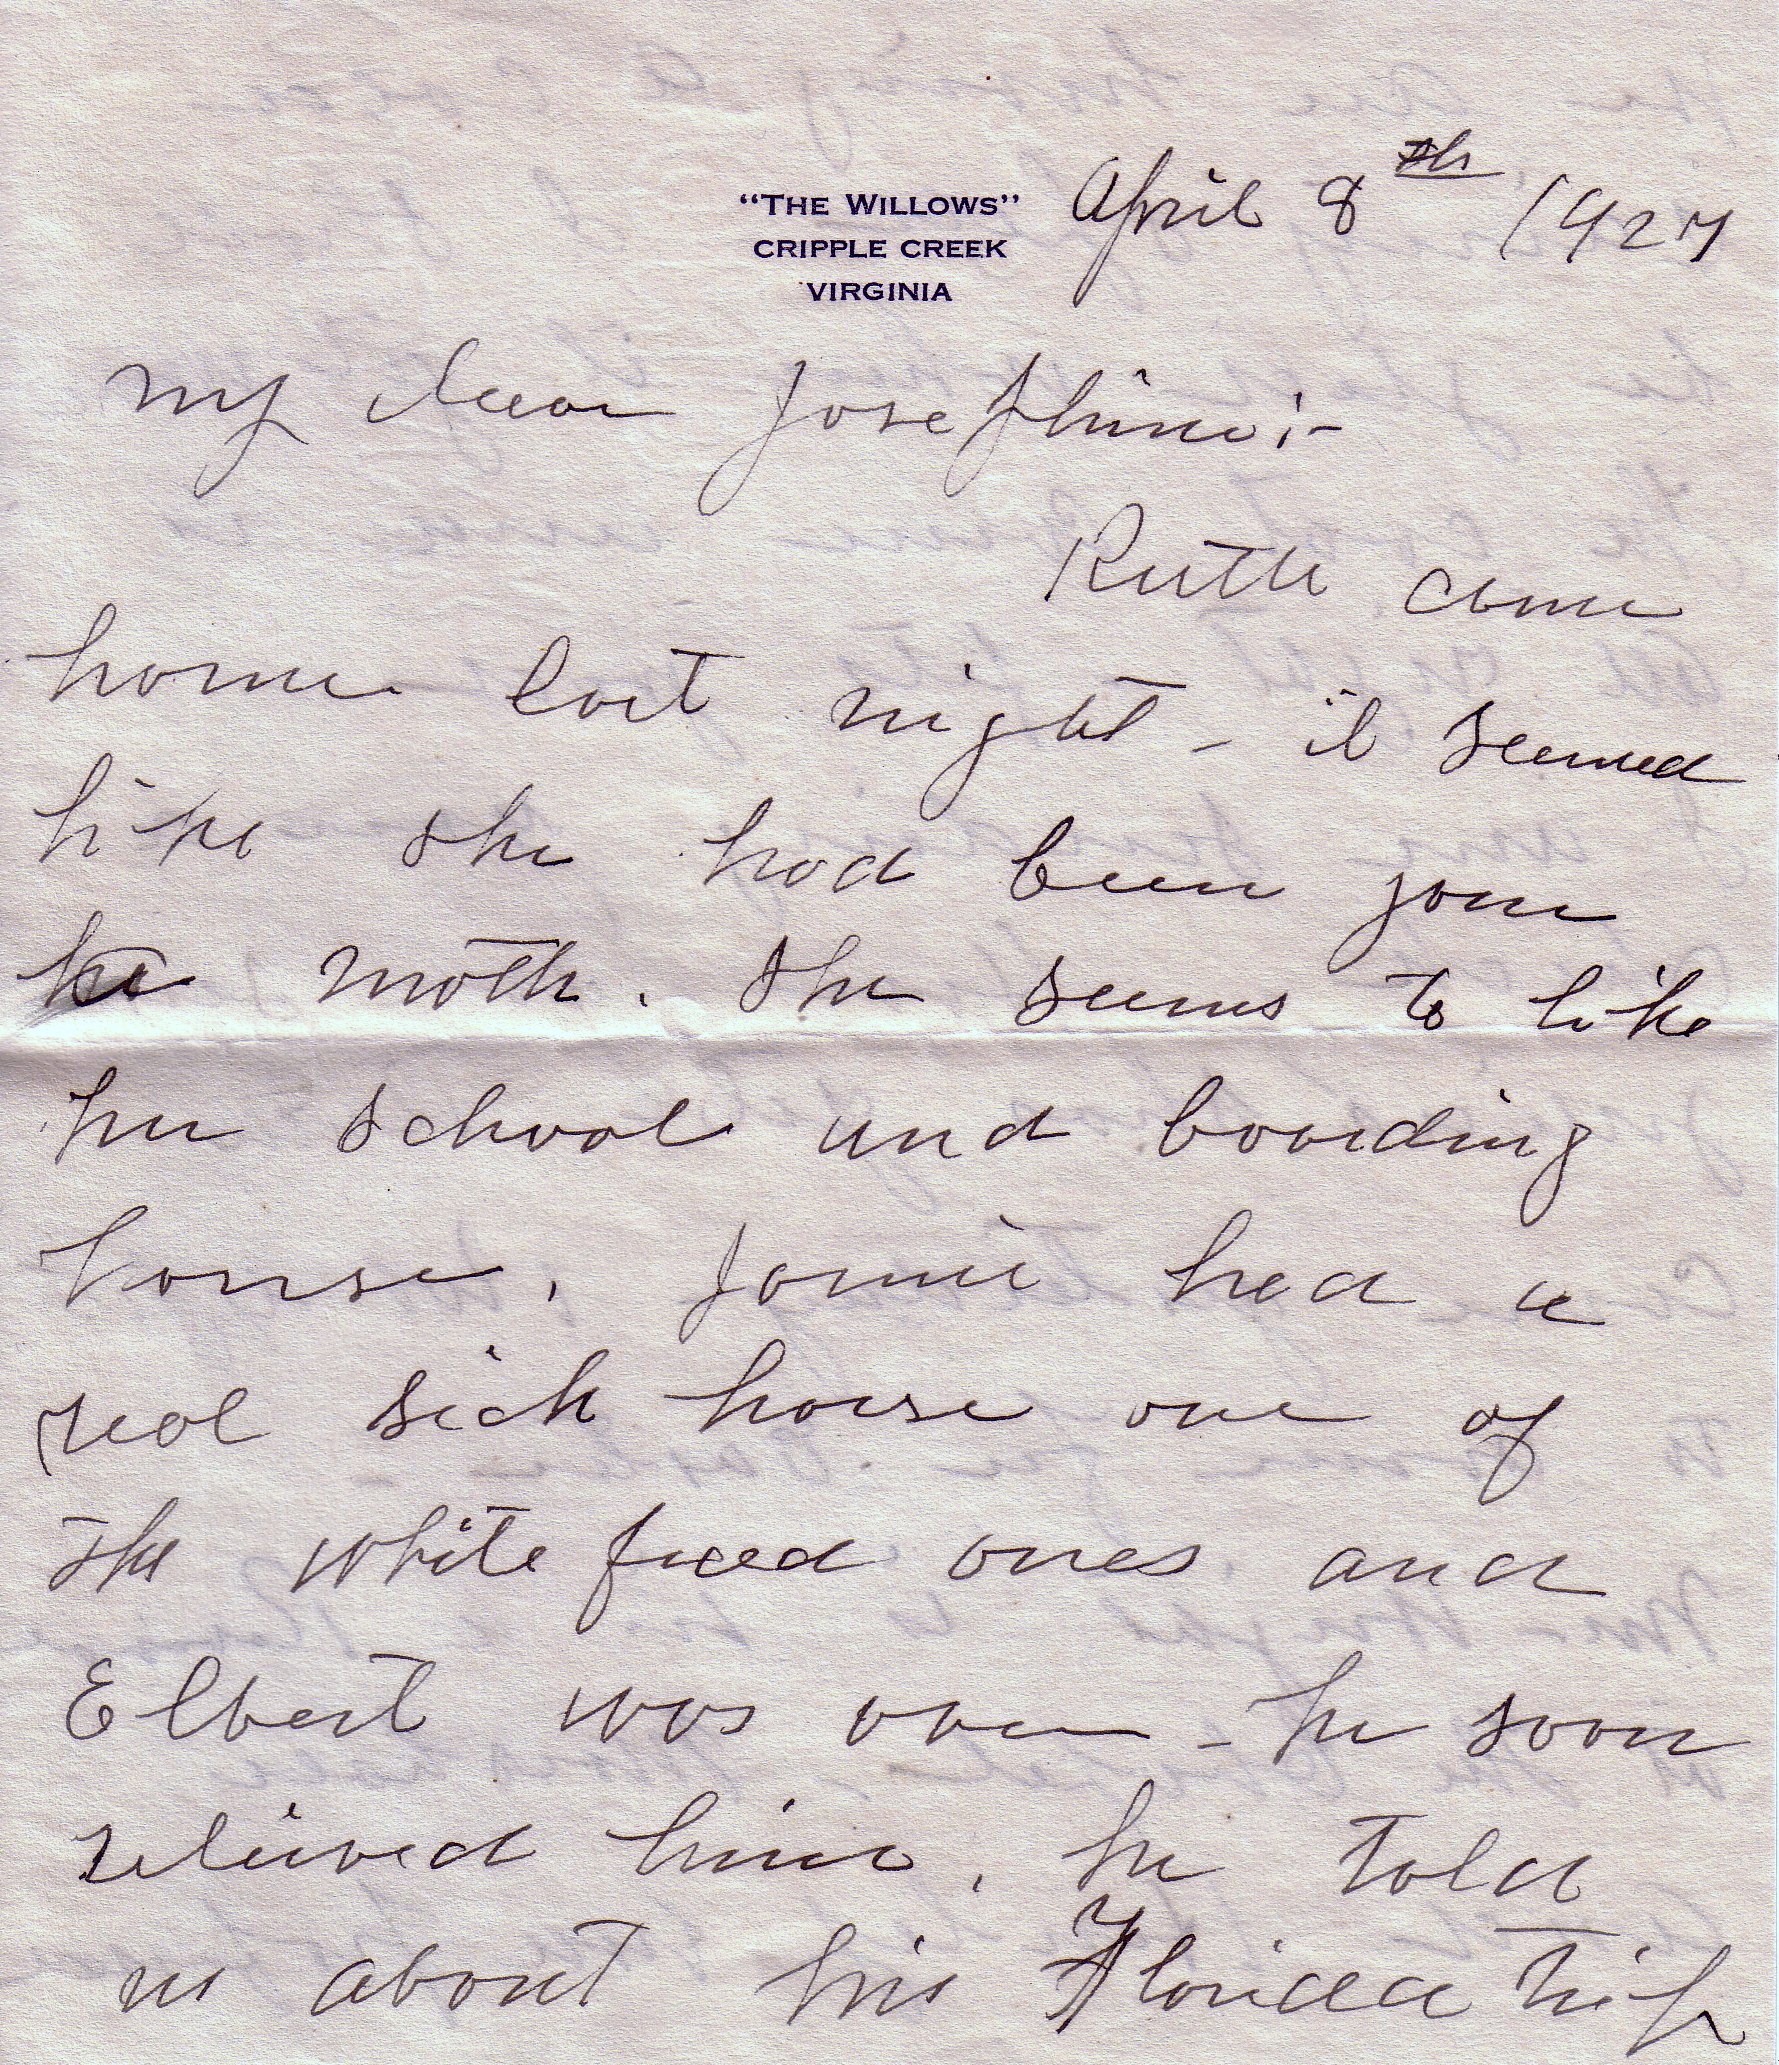 "THE WILLOWS"
CRIPPLE CREEK
VIRGINIA
April 8th 1927
My dear Josephine:-
Ruth came
home last night - it seemed
like she had been gone
a month. She seems to like
her school and boarding
house. Jamie had a
real sick horse one of
the white faced ones and
Elbert was over - he soon
relieved him. he told
us about his Florida trip